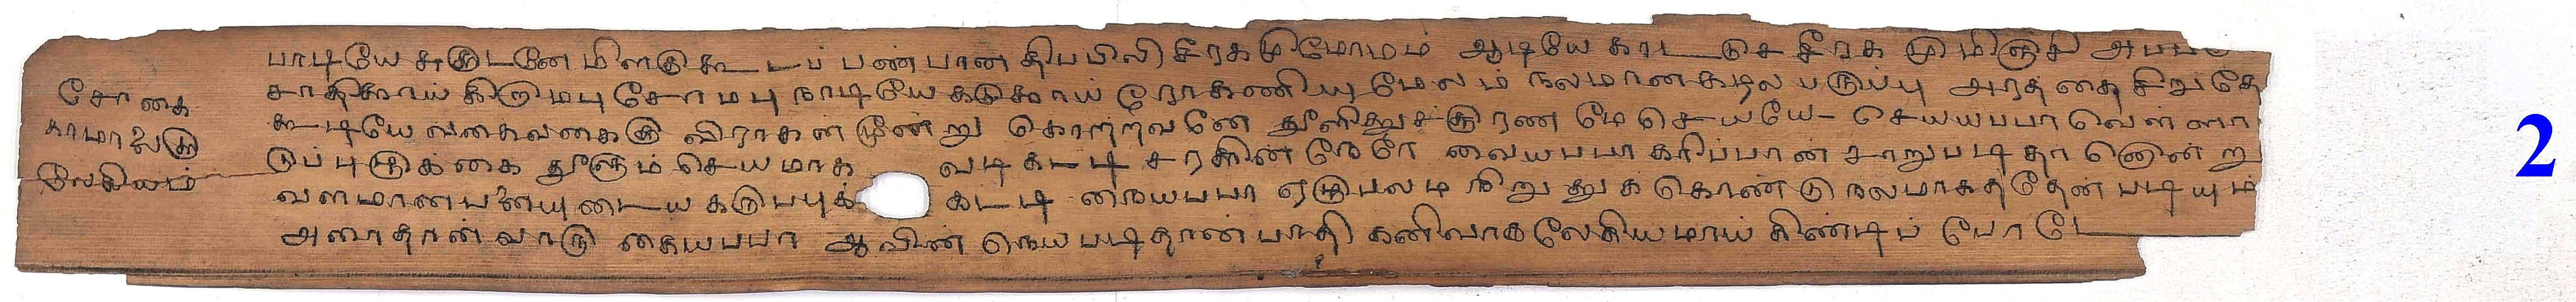 சோகை
காமாலைகு
லேகியம்
பாடியே சுகுடனே மிளகு கூடப் பண்பான திபபிலி சீரகமுமோமம் ஆடியே காட்டுச சீரக மு மிஞசி
சாதிகாய கிறாமபு சோமபு நாடியே கடுககாய் ரோகணியு மேலம் நலமான கடல பருப்பு அரததை சிறுதே
கூடியே வகைவகைகு விராகன் மூன்று கொற்றவனே தூளிதுச சூரண மே செயயே செயயபபா வெள்ளா
டுப்பு ழுக்கை தூளும் செயமாக வடிகடடி சரககின் நேரே வையபபா கரிப்பான் சாறு படி தா னென் று
வளமான பனையுடைய கருபபுக் கட்டி நையபபா ஏழுபலம நிறு துக் கொண்டு நலமாகத்தேன் படியும்
அவைதான் வாரு கையபபா ஆவின் நெய படிதான் பாதி கனிவாக லேகியமாய் கிண்டிப் போடே
2